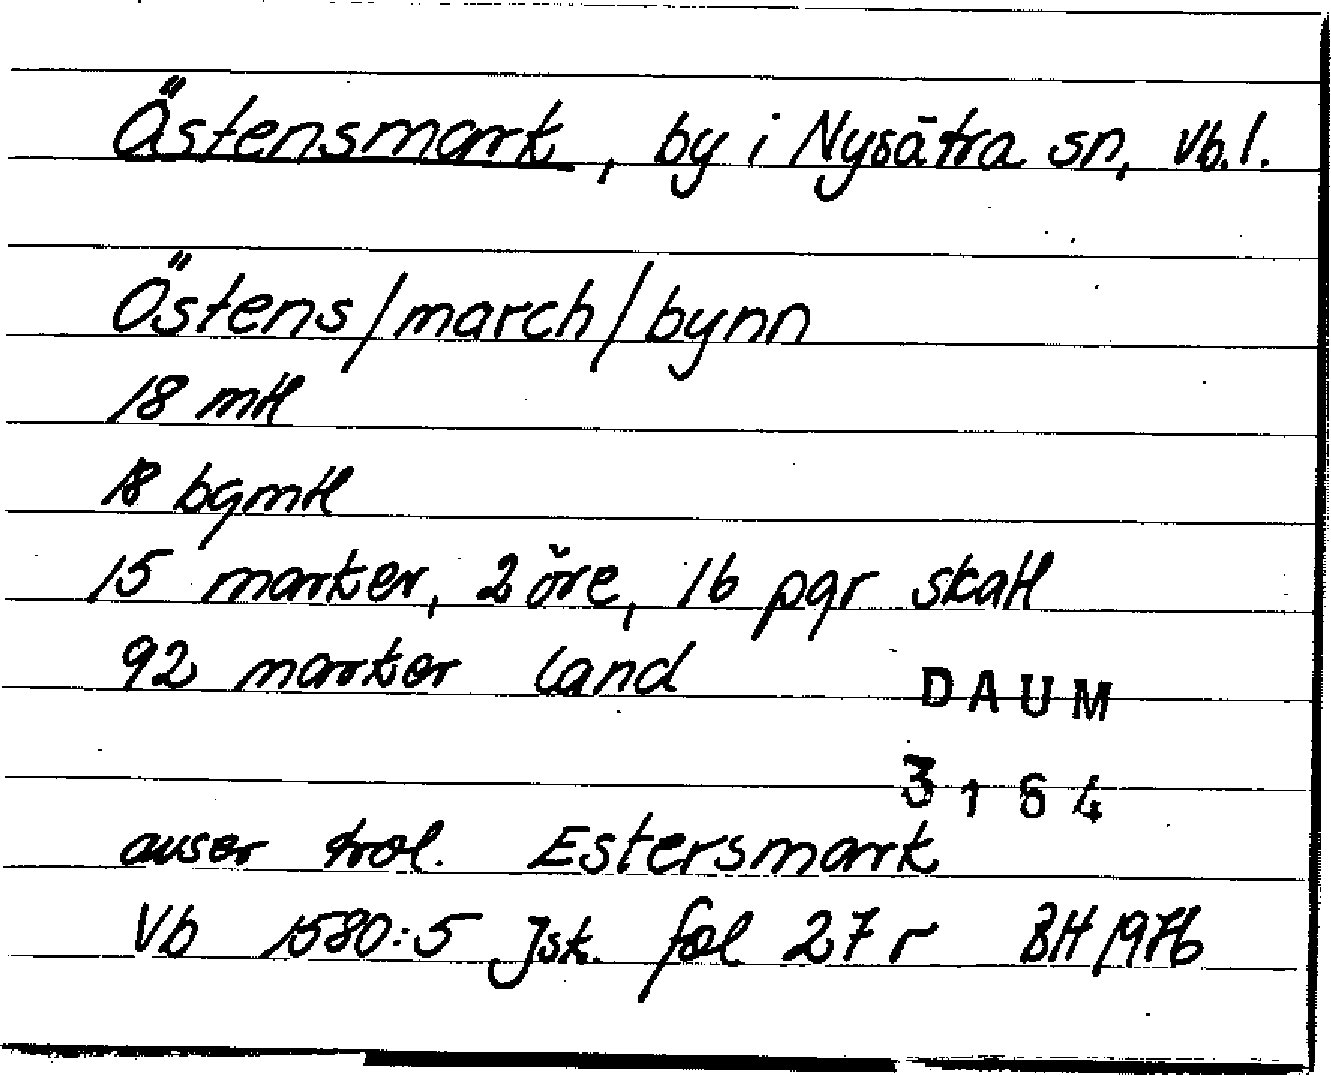 Östensmark, by i Nysätra sn, Vb.l.
Östens/march/bynn
18 mtl
18 bgmtl
15 marker, 2 öre, 16 pgr skatt
92 marker land
DAUM
3164
avser trol. Estersmark
Vb 1580:5 Jsk. fol 27 r BH 1976